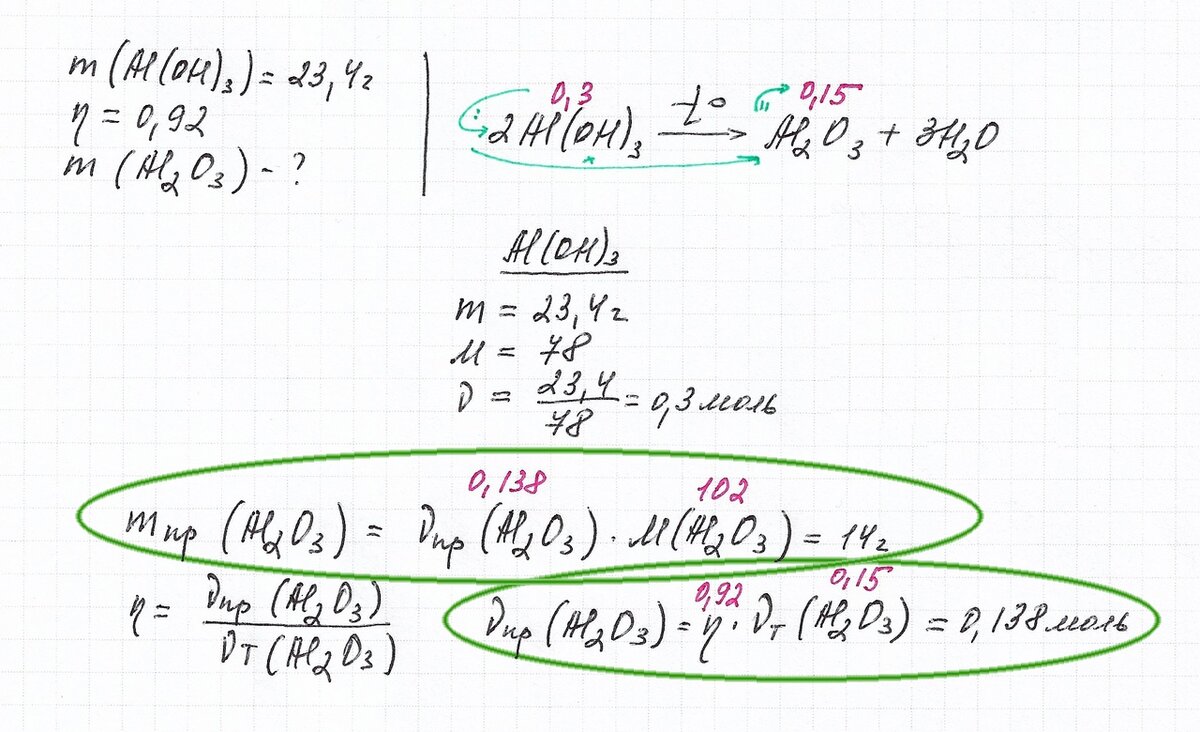 m (Al(OH)₃) = 23,4г
η = 0,92
m (Al₂O₃) - ?
0,3 0,15
2Al(OH)₃ t° → Al₂O₃ + 3H₂O
: × =
Al(OH)₃
m = 23,4г
M = 78
ν = 23,4/78 = 0,3 моль
0,138 102
mпр (Al₂O₃) = νпр (Al₂O₃) · M(Al₂O₃) = 14г
η = νпр (Al₂O₃)/νт (Al₂O₃)
0,92 0,15
νпр (Al₂O₃) = η · νт (Al₂O₃) = 0,138 моль